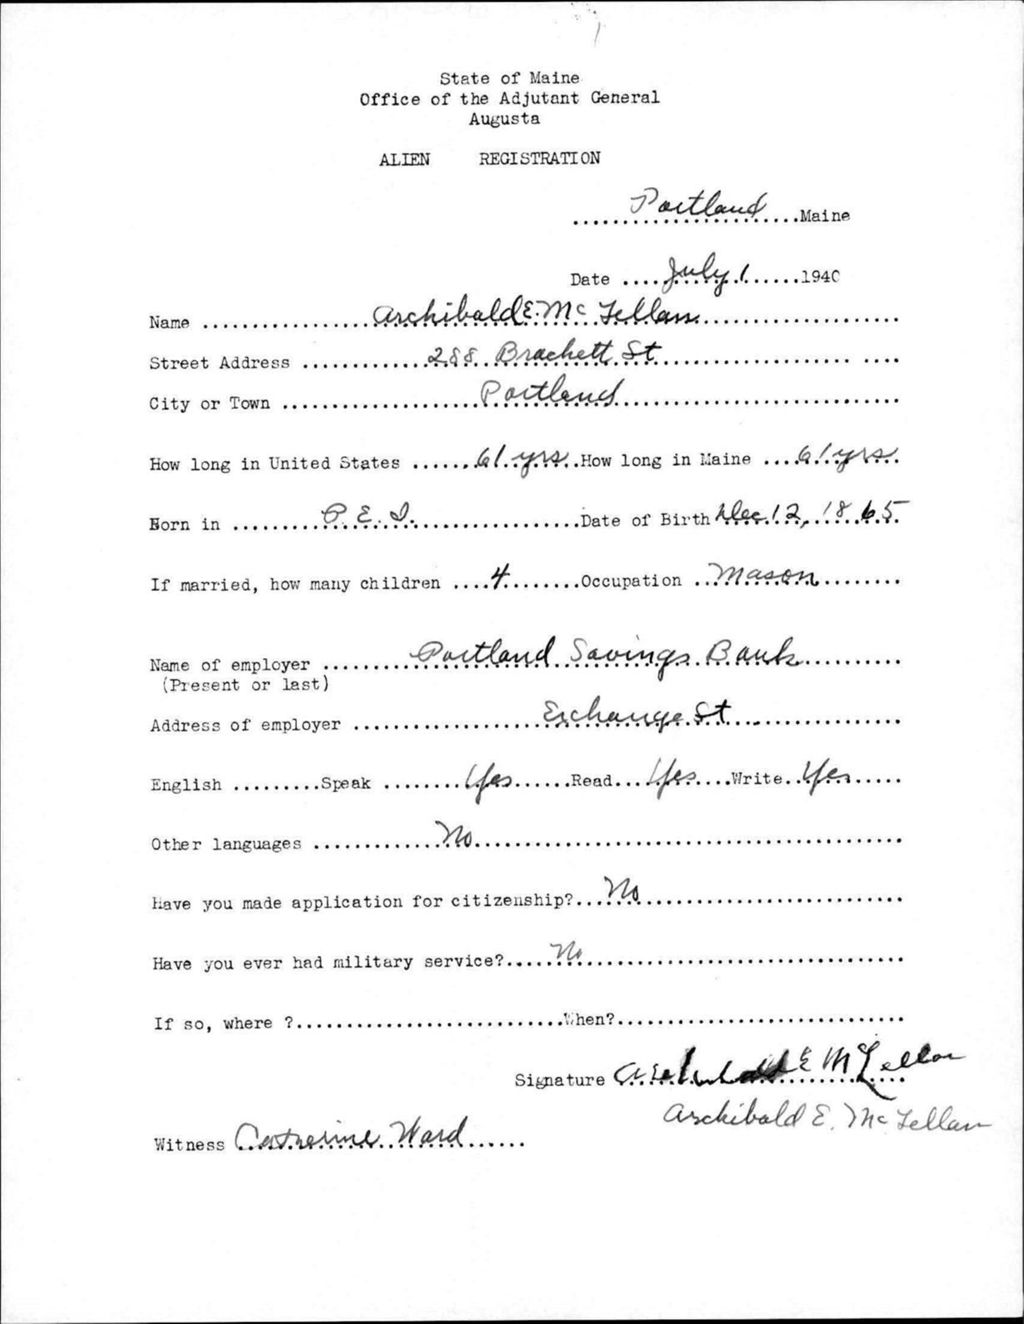 State of Maine
Office of the Adjutant General
Augusta
ALIEN REGISTRATION
Portland Maine
Date July 1 1940
Name Archibald E. Mc Lellan
Street Address 288 Brackett St
City or Town Portland
How long in United States 61 yrs How long in Maine 61 yrs
Born in P. E. I. Date of Birth Dec. 12, 1865
If married, how many children 4 Occupation Mason
Name of employer Portland Savings Bank
(Present or last)
Address of employer Exchange St
English Speak Yes Read Yes Write Yes
Other languages No
Have you made application for citizenship? No
Have you ever had military service? No
If so, where ? When?
Signature Archibald E McLellan
Archibald E. Mc Lellan
Witness Catherine Ward